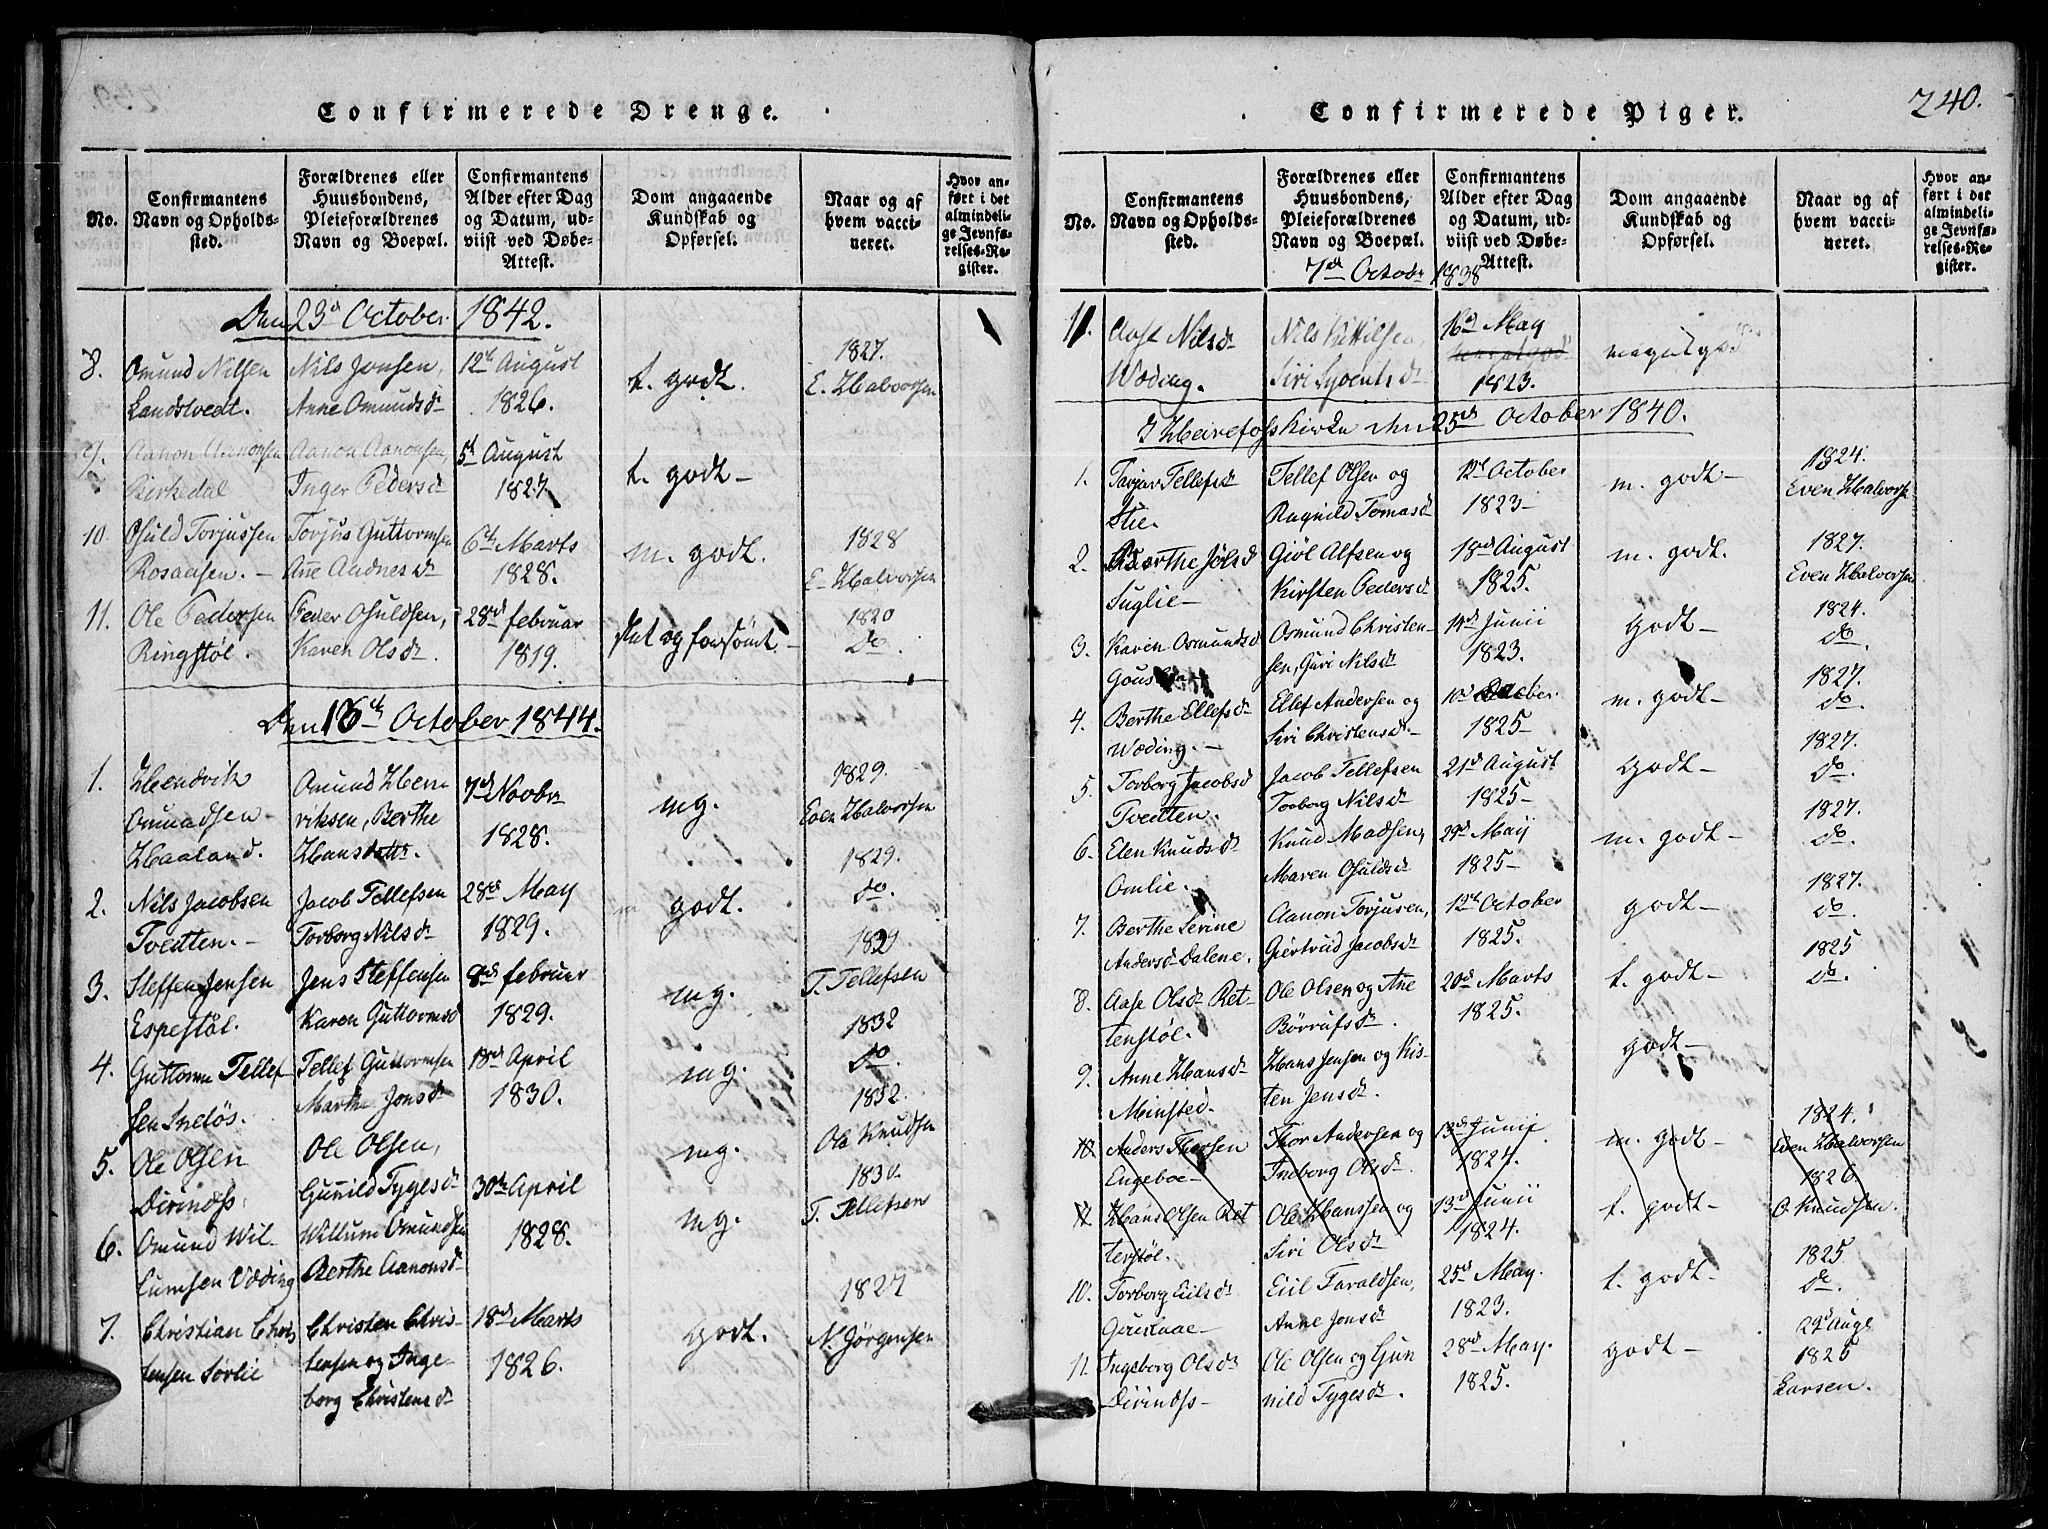 Confirmerede Drenge.
No.
Confirmantens Navn og Opholds-sted.
Forældrenes eller Huusbondens, Pleieforældrenes Navn og Boepæl.
Confirmantens Alder efter Dag og Datum, ud-viist ved Døbe-Attest.
Dom angaaende Kundskab og Opførsel.
Naar og af hvem vacci-neret.
Hvor an-ført i det almindeli-ge Jevnfø-relses-Re-gister.
Den 23d October 1842.
8. Omund Nilsen Nils Jonsen, 12te August t. godt. 1827.
Landstvedt. Anne Omundsd 1826. E. Halvorsen
9. Aanon Aanonsen Aanon Aanonsen, 5te August t. godt -
Birkedal Inger Pedersd 1827
10. Osuld Torjussen Torjus Guttormsen 6te Marts m. godt. 1828
Rosaasen. - Ane Andnesd 1828. E. Halvorsen
11. Ole Pedersen Peder Osuldsen, 28de februar slet og forsömt - 1820
Ringstøl. Karen Olsd. 1819. Do.
Den 13de October 1844.
1. Hendrik Omund Hen 7de Novbr mg. 1829.
Omundsen riksen, Berthe 1828. Even Halvorsen
Haaland. Hansdatter.
2. Nils Jacobsen Jacob Tellefsen 28de May godt. 1829.
Tveitten. - Torborg Nilsd 1829. do.
3. Steffen Jensen Jens Steffensen 8de februar mg.
Espestøl. Karen Guttormsd 1829. T. Tellefsen
4. Guttorm Tellef Tellef Guttormsen 18de April mg. 1832
sen Sneløs. Marthe Jonsd 1830. do.
5. Ole Olsen Ole Olsen, 30te April mg. 1832.
Dirindss. Gunild Tygesd Ole Knudsen
6. Omund Wil- Willum Omundsen 1828. mg. 1830.
lumsen Vøding Berthe Aanonsd T. Tellefsen
7. Christian Chris Christen Chris- 18de Marts godt. 1827
tensen Sørlie tensen og Inge- 1826. N. Jörgensen
borg Christensd
240.
Confirmerede Piger.
No.
Confirmantens Navn og Opholds-sted.
Forældrenes eller Huusbondens, Pleieforældrenes Navn og Boepæl.
Confirmantens Alder efter Dag og Datum, ud-viist ved Døbe-Attest.
Dom angaaende Kundskab og Opførsel.
Naar og af hvem vacci-neret.
Hvor an-ført i det almindeli-ge Jevnfø-relses-Re-gister.
7de Octobr 1838
11. Aase Nilsd Nils Kittilsen, 16d May
Wøding. Siri Syvertsd 1823.
I Heirefoss Kirke den 25de October 1840.
1. Torjer Tellefsd Tellef Olsen og 12te October m. godt - 1824.
Stie. Ragnild Tomasd 1823 - Even Halvorse
2. Berthe Jölsd Giöl Alfsen og 18de August m. godt. 1827.
Suglie - Kirsten Pedersd 1825. Even Halvorsen
3. Karen Osmundsd Osmund Christen- 14de Junii godt - 1824.
sen, Guri Nilsd 1823. do
4. Berthe Ellefsd Ellef Andersen og m. godt - 1827.
Wøding. - Siri Christensd. - 1825 - do.
5. Torborg Jacobsd Jacob Tellefsen 21de August godt - 1827.
Tveitten. Torborg Nilsd 1825 - do.
6. Elen Knudsd Knud Madsen, 29de May m. godt - 1827.
Omlie. Maren Osuldsd 1825 - do.
7. Berthe Serine Aanon Torjusen, 12te October godt - 1827.
Andersd Dalene. Giertrud Jacobsd 1825. do.
8. Aase Olsd Ret Ole Olsen og Ane 20de Marts t. godt - 1825
tenstøl. Börrufsd. 1825. do.
9. Anne Hansd Hans Jensen og Kis- godt -
Meinsted. ten Jensd.
10 Anders Thorsen Thor Andersen og 13de Junii m. godt - 1824.
Engeboe - Ineborg Olsd. 1824. Even Halvorsen
11 Hans Olsen Ret Ole Hanssen og 13de Junii t. godt - 1826.
tenstøl. Siri Olsd 1824. O. Knudsen.
10. Torborg Eiilsd Eiil Taraldsen, 25de May. t. godt - 1825
Anne Jonsd 1823. do.
11. Ingeborg Olsd Ole Olsen og Gun 28de May. godt - 29d Aug.
Dirindss - nild Tygesd. 1825. 1825
Larsen.